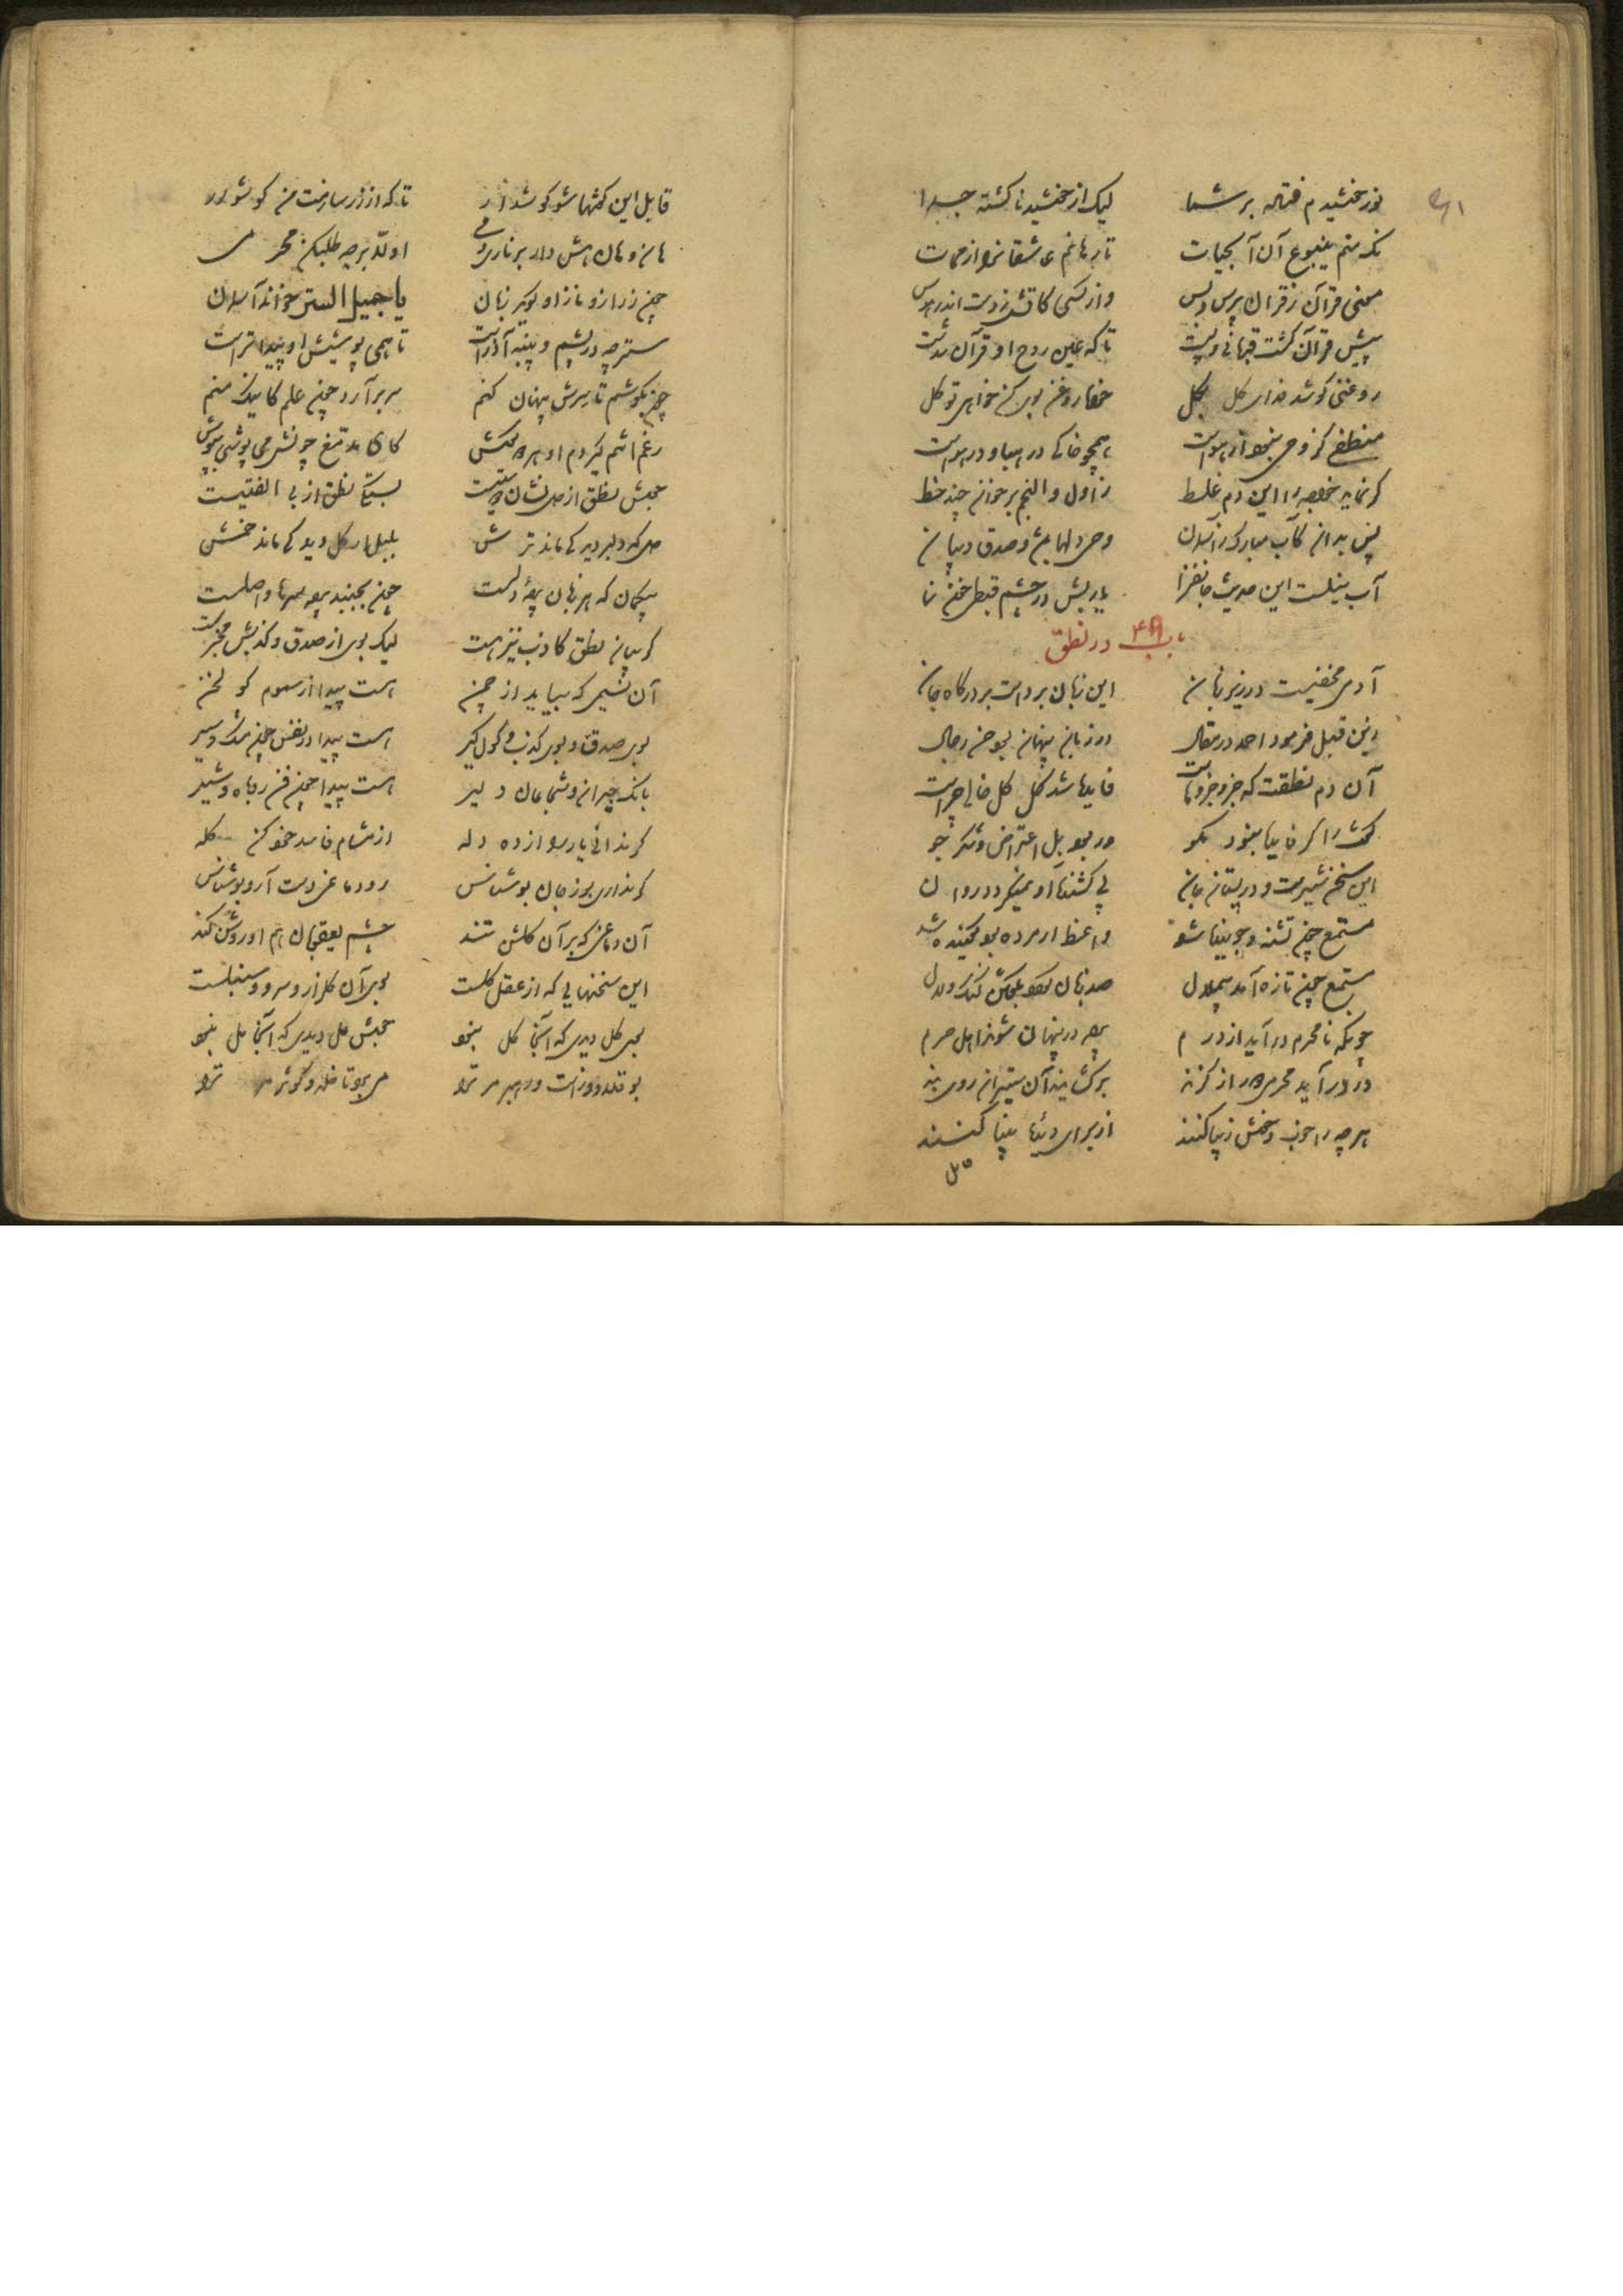 نور خورشیدم فتاده بر شما لیک از خورشید ناگشته جدا
نک منم ینبوع آن آب حیات تا رهانم عاشقانرا از ممات
معنی قرآن ز قرآن پرس و بس وز کسی کاتش زدست اندر هوس
پیش قرآن گشت قربانی و پست تا که عین روح او قرآن شدست
روغنی کو شد فدای گل بکل خواه روغن بوی کن خواهی تو گل
منطقی کز وحی نبود از هواست همچو خاکی در هوا و در هباست
گر نماید خواجه را این دم غلط ز اول والنجم بر خوان چند خط
آب نیلست این حدیث جانفزا یا ربش در چشم قبطی خون نما
باب ۴۹ در نطق
آدمی مخفیست در زیر زبان این زبان پرده است بر درگاه جان
زین قبل فرمود احمد در مقال در زبان پنهان بود حسن رجال
آن دم نطقت که جزو جزوهاست فایده شد کل کل خالی چراست
گفت را گر فایده نبود مگو ور بود هل اعتراض و شکر جو
این سخن شیرست و در پستان جان بی کشنده او نمیگردد روان
مستمع چون تشنه و جوینده شد واعظ ار مرده بود گوینده شد
مستمع چون تازه آمد بی ملال صد زبان گردد بگفتن گنگ و لال
چونکه نامحرم درآید از درم پرده در پنهان شوند اهل حرم
ور درآید محرمی دور از گزند برگشایند آن ستیران روی بند
هرچه را خوب و خوش و زیبا کنند از برای دیده بینا کنند
قابل این گفتها شو گوشوار تا که از زر سازمت من گوشوار
هین و هان هش دار بر ناری دمی اولا بر جه طلب کن محرمی
چون ز راز و ناز او گوید زبان یا جمیل الستر خواند آسمان
ستر چه در پشم و پنبه آذرست تا همی پوشیش او پیداترست
چون بکوشم تا سرش پنهان کنم سر برآرد چون علم کاینک منم
رغم انفم گیردم او هر دو گوش کای مدمغ چونش می پوشی بپوش
جوش نطق از دل نشان دوستیست بستگی نطق از بی الفتیست
دل که دلبر دید کی ماند ترش بلبلی گل دید کی ماند خمش
بیگمان که هر زبان پرده دلست چون بجنبد پرده سرها واصلست
گر بیان نطق کاذب نیز هست لیک بوی از صدق و کذبش مخبرست
آن نسیمی که بیاید از چمن هست پیدا از سموم گولخن
بوی صدق و بوی کذب گول گیر هست پیدا در نفس چون مشک و سیر
بانگ حیزان و شجاعان دلیر هست پیدا چون فن روباه و شیر
گر ندانی یار را از ده دله از مشام فاسد خود کن گله
آن دماغی که بر آن گلشن تنند چشم یعقوبان هم او روشن کند
این سخنهایی که از عقل کلست بوی آن گلزار و سرو و سنبلست
بوی گل دیدی که آنجا گل نبود جوش مل دیدی که آنجا مل نبود
بو قلاووزست و رهبر مر ترا می برد تا خلد و کوثر مر ترا